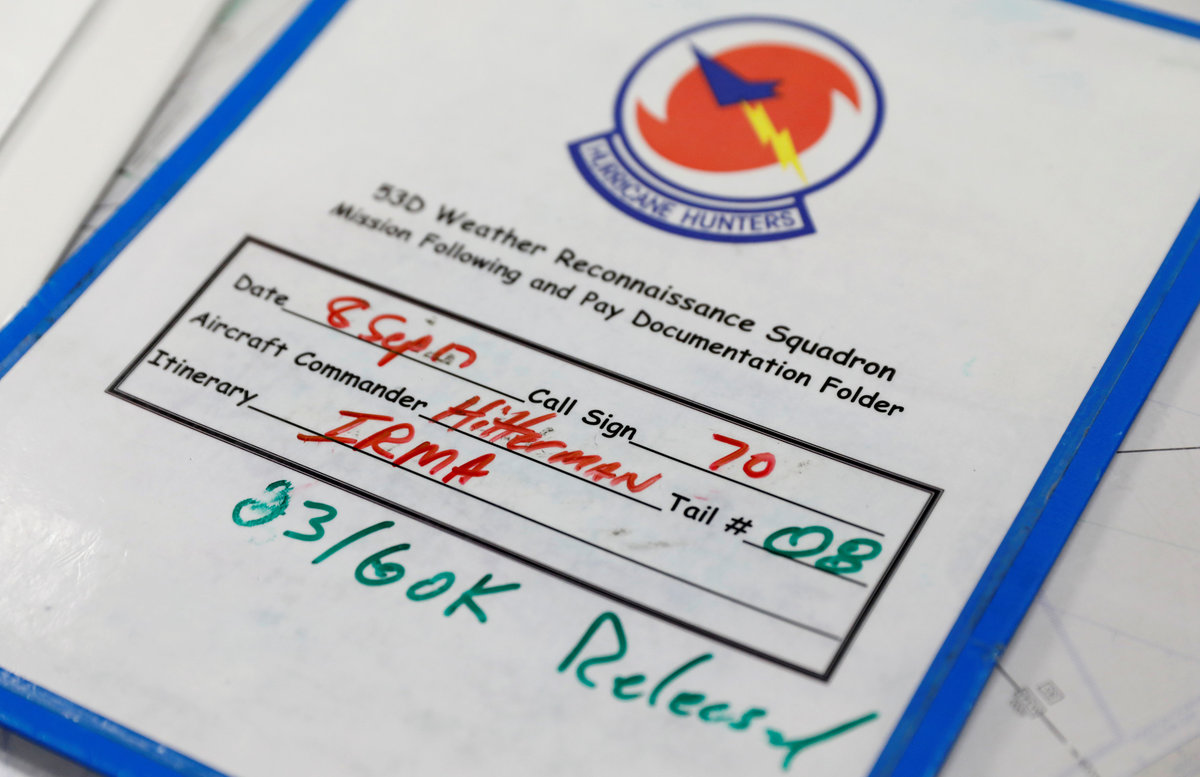 HURRICANE HUNTERS
53D Weather Reconnaissance Squadron
Mission Following and Pay Documentation Folder
Date 8 Sep 17 Call Sign 70
Aircraft Commander Hitterman Tail # 08
Itinerary IRMA
/60K Released